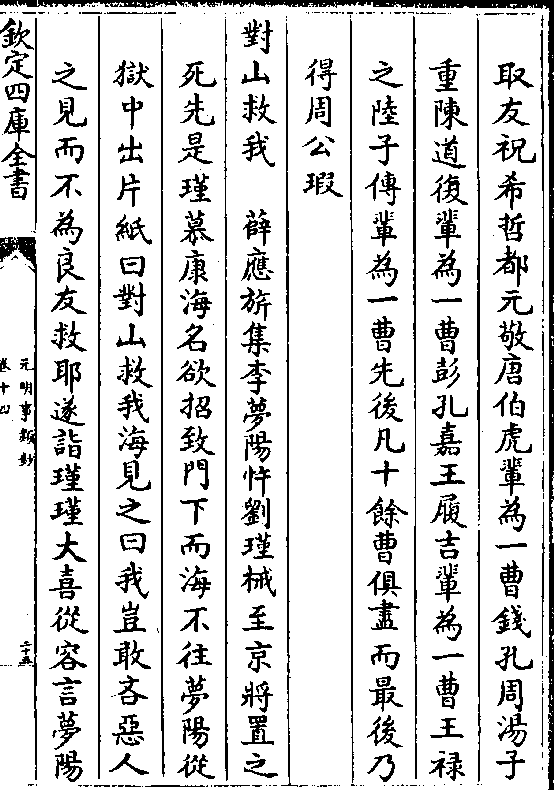 取友祝希哲都元敬唐伯虎輩為一曹錢孔周湯子
重陳道復輩為一曹彭孔嘉王履吉輩為一曹王禄
之陸子傳輩為一曹先後凡十餘曹俱盡而最後乃
得周公瑕
對山救我　薛應旂集李夢陽忤劉瑾械至京將置之
死先是瑾慕康海名欲招致門下而海不往夢陽從
獄中出片紙曰對山救我海見之曰我豈敢吝惡人
之見而不為良友救耶遂詣瑾瑾大喜從容言夢陽
欽定四庫全書
元明事類鈔
卷十四
二十五